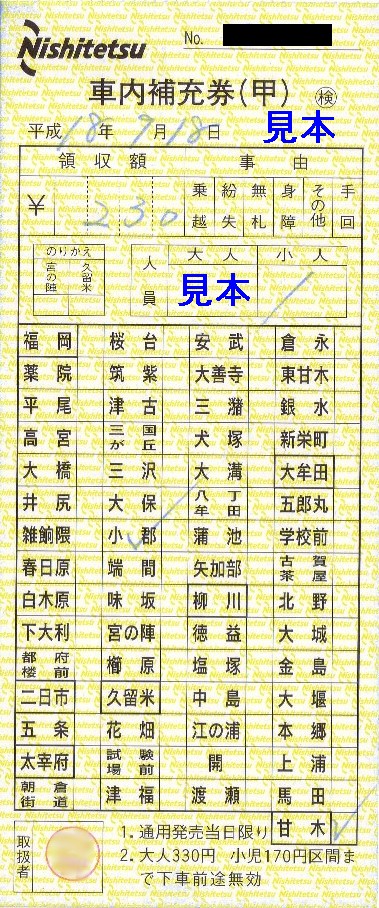 Nishitetsu
No.
車内補充券(甲) 検
平成18年9月18日 見本
領収額 事由
¥ 230 乗越 紛失 無札 身障 その他 手回
のりかえ 宮の陣 久留米 人員 大人 小人
見本
福岡 桜台 安武 倉永
薬院 筑紫 大善寺 東甘木
平尾 津古 三潴 銀水
高宮 三国が丘 犬塚 新栄町
大橋 三沢 大溝 大牟田
井尻 大保 八丁牟田 五郎丸
雑餉隈 小郡 蒲池 学校前
春日原 端間 矢加部 古賀茶屋
白木原 味坂 柳川 北野
下大利 宮の陣 徳益 大城
都府楼前 櫛原 塩塚 金島
二日市 久留米 中島 大堰
五条 花畑 江の浦 本郷
太宰府 試験場前 開 上浦
朝倉街道 津福 渡瀬 馬田
甘木
取扱者
1. 通用発売当日限り
2. 大人330円 小児170円区間ま
で下車前途無効